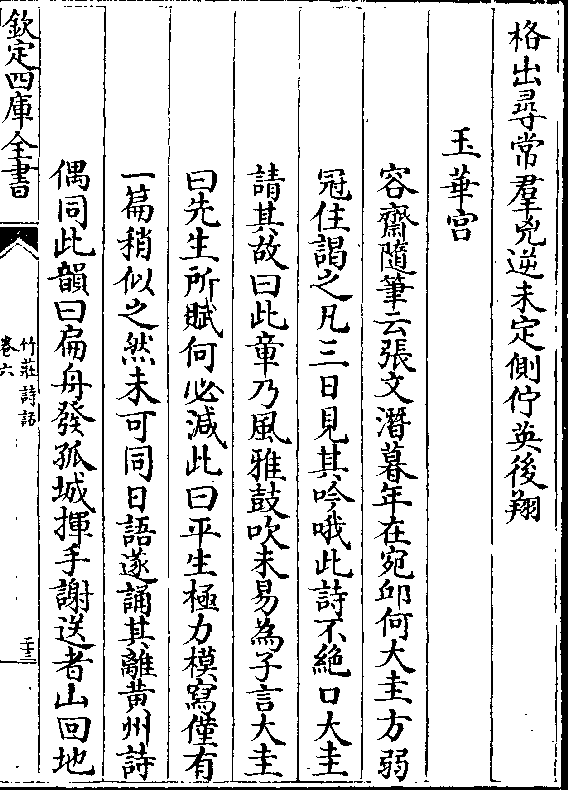 格出尋常羣兇逆未定側佇英後翔
玉華宫
容齋隨筆云張文潛暮年在宛邱何大圭方弱
冠住謁之凡三日見其吟哦此詩不絶口大圭
請其故曰此章乃風雅鼓吹未易為子言大圭
曰先生所賦何必減此曰平生極力模寫僅有
一篇稍似之然未可同日語遂誦其離黄州詩
偶同此韻曰扁舟發孤城揮手謝送者山回地
欽定四庫全書
竹莊詩話
卷六
二十三